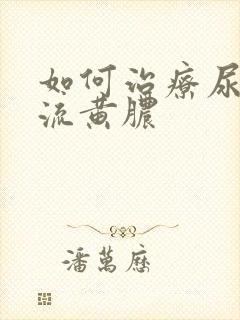 如何治療尿
流黄膿
潘萬歷